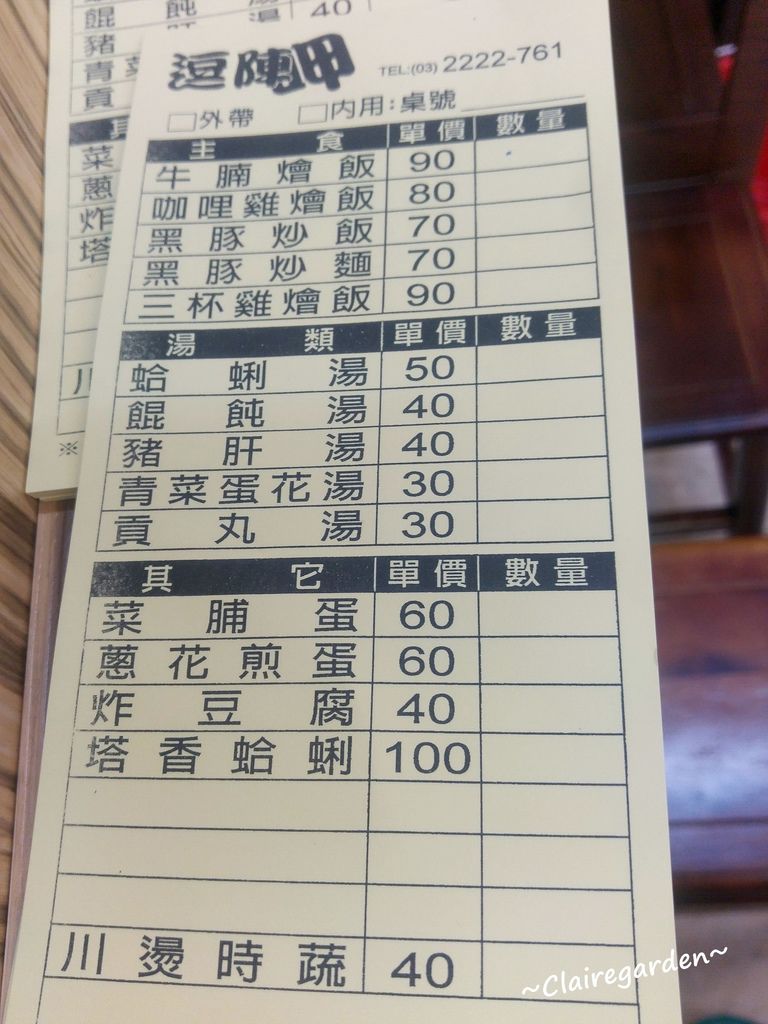 餛飩湯 40
豬
青菜
貢
其
菜
蔥
炸
塔
川
※
逗陣甲 TEL:(03) 2222-761
□外帶 □內用:桌號
主食 單價 數量
牛腩燴飯 90
咖哩雞燴飯 80
黑豚炒飯 70
黑豚炒麵 70
三杯雞燴飯 90
湯類 單價 數量
蛤蜊湯 50
餛飩湯 40
豬肝湯 40
青菜蛋花湯 30
貢丸湯 30
其它 單價 數量
菜脯蛋 60
蔥花煎蛋 60
炸豆腐 40
塔香蛤蜊 100
川燙時蔬 40
~Clairegarden~